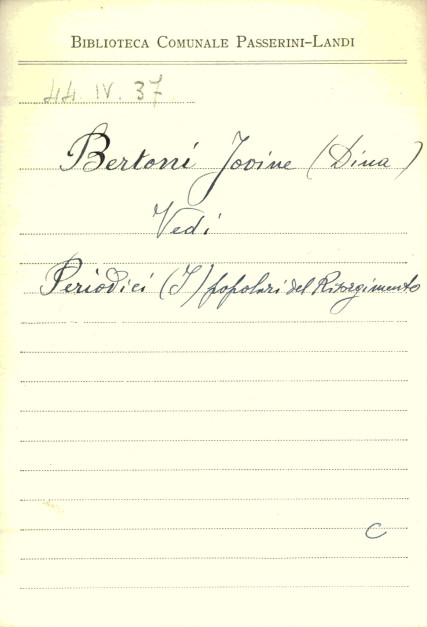 BIBLIOTECA COMUNALE PASSERINI-LANDI
44. IV. 37
Bertoni Jovine (Dina)
Vedi
Periodici (I) popolari del Risorgimento
C